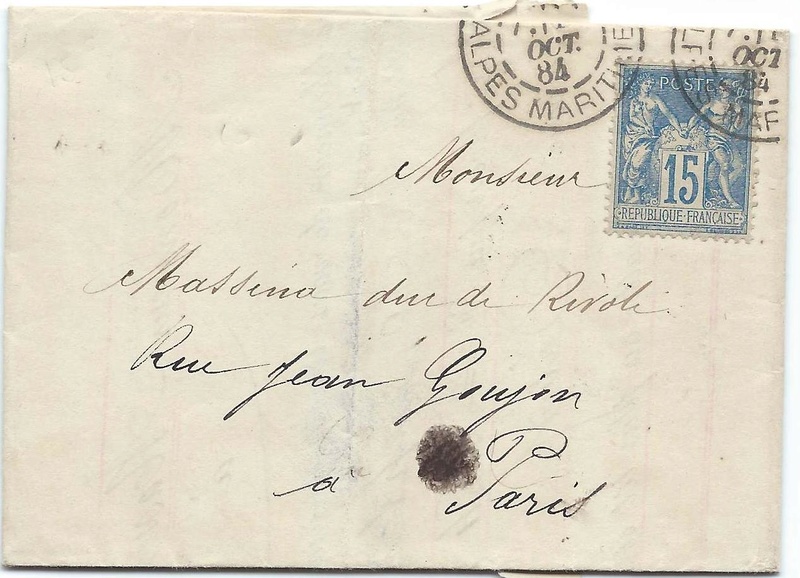 OCT. 84
ALPES MARITI
OCT 84
MAR
POSTE
15
REPUBLIQUE FRANÇAISE
Monsieur
Massena duc de Rivoli
Rue Jean Goujon
à Paris